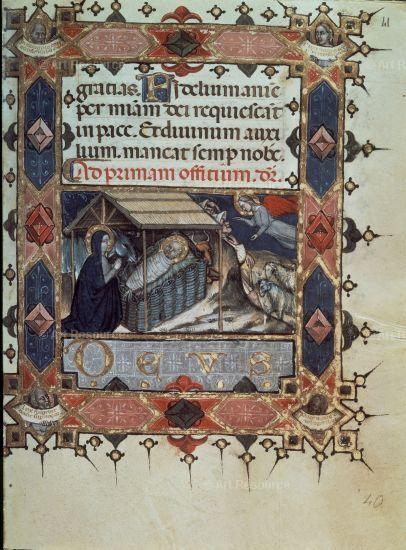 41
gracias. Fidelium anie
per miam dei requiescat
in pace. Et diuinum auxi
lium. maneat semp nobc.
Ad primam officium.
DEVS
Art Resource
40